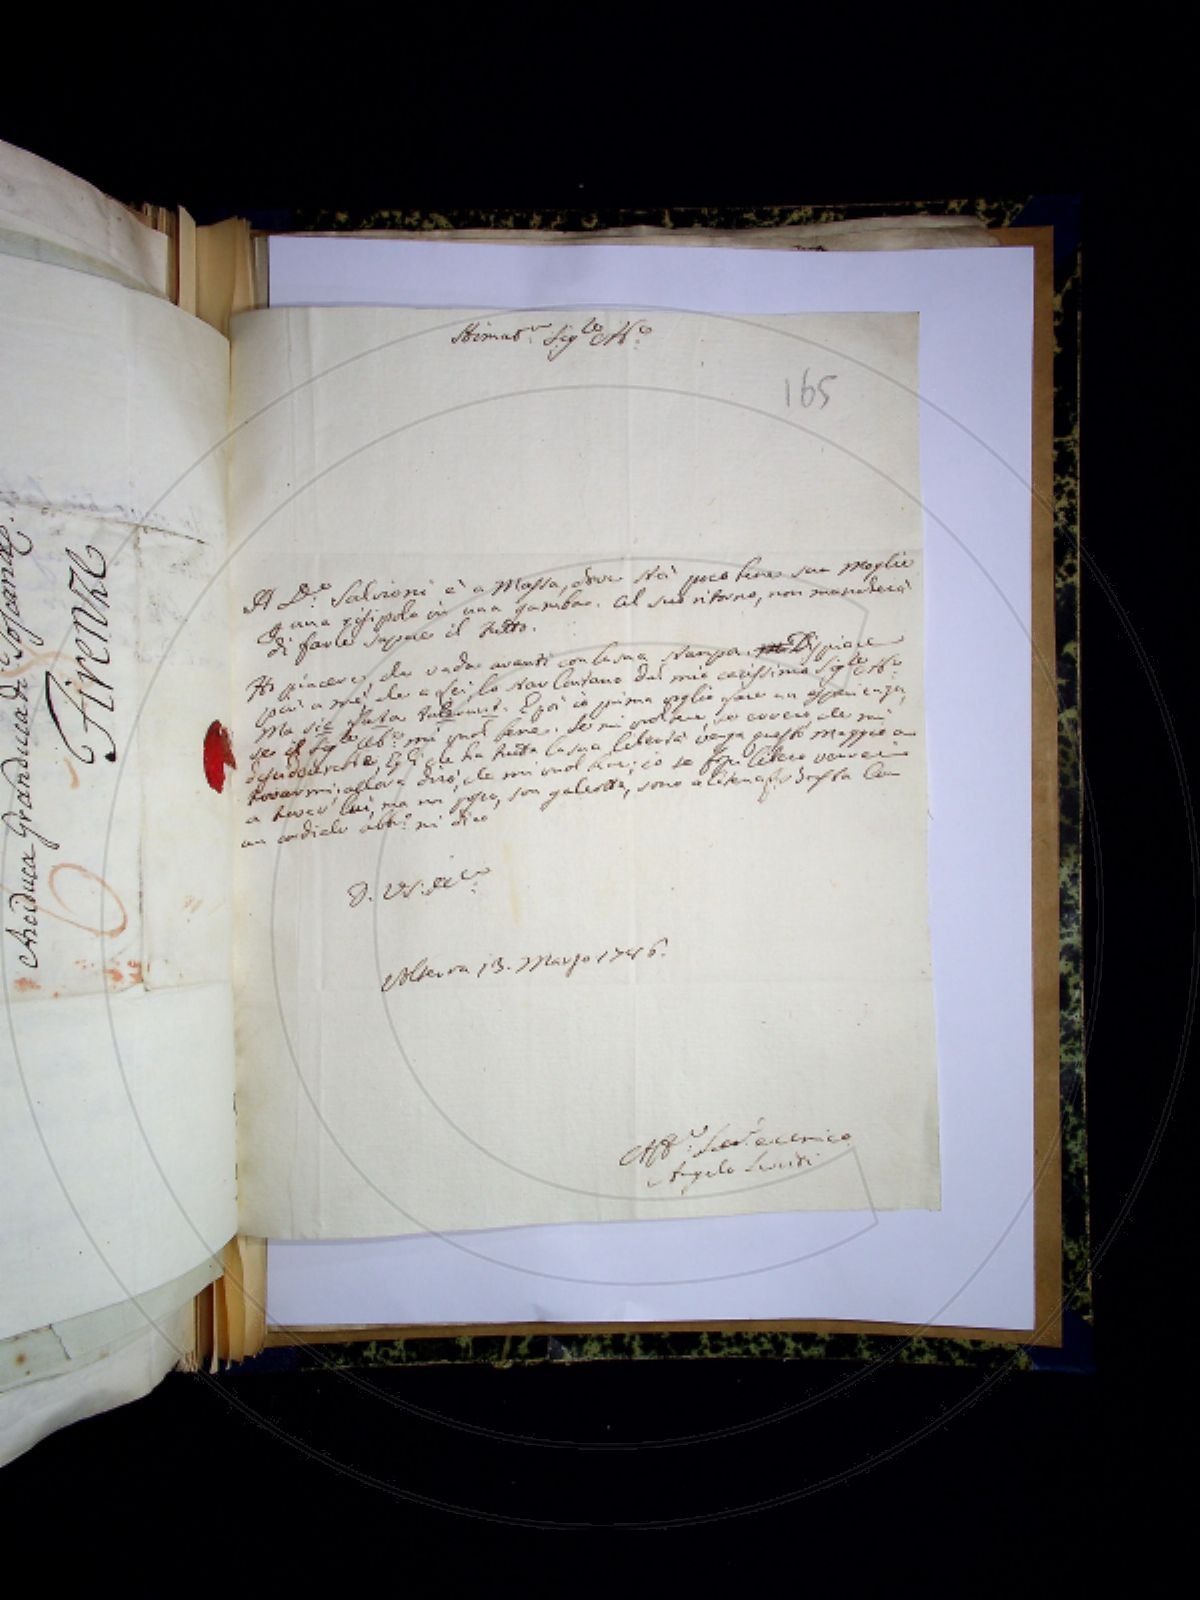 Arciduca Granduca di Toscana
Firenze
Stimat.mo Sig.re Ab.e
165
Il D.re Salvioni è a Massa, dove stà poco bene sua Moglie
p una risipola in una gamba. Al suo ritorno, non mancherà
di farle sapere il tutto.
Hò piacere, che vada avanti con la sua stampa. Dispiace
poi a me, che a lei lo star lontano dal mio carissimo Sig.re Ab.e
Ma sic fata E poi io prima voglio fare un esperienza,
se il Sig.re Ab.e mi vuol bene. Se mi vuol bene, io ovvero che mi
Egli che ha tutta la sua libertà venga questo Maggio a
trovarmi; allora dirò, che mi vuol bene; io se fossi libero verrei
a trovar lui, ma un son galeotto, sono alla Con
un cordiale abb.o mi dico
D. VS. Ill.ma
13. Marzo 1746.
Aff.mo Ser.e e amico
Angelo